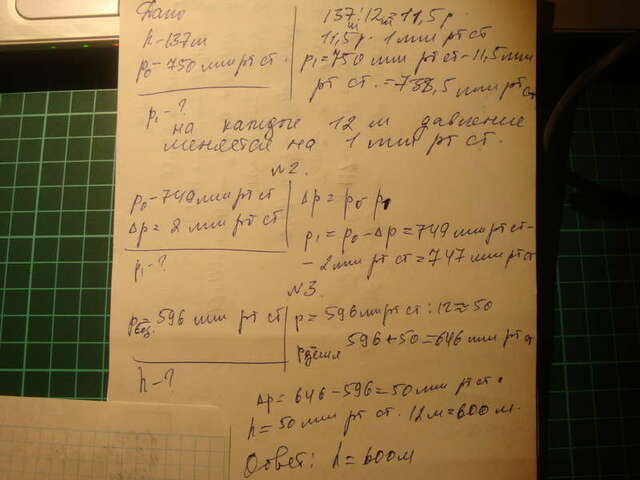 Дано
h-137м
p₀-750 мм рт ст.
p₁-?
137м:12м=11,5р.
11,5р. 1мм рт ст
p₁=750 мм рт ст-11,5мм
рт ст.=738,5мм рт ст
на каждые 12 м давление
меняется на 1 мм рт ст.
№2.
p₀-749мм рт ст
Δp=2 мм рт ст
p₁-?
Δp=p₀ p₁
p₁=p₀-Δp=749мм рт ст-
-2мм рт ст=747мм рт ст
№3.
pвоз.=596 мм рт ст
h-?
p=596мм рт ст:12≈50
596+50=646мм рт ст
Δp=646-596=50мм рт ст.
h=50мм рт ст. 12м=600м.
Ответ: h=600м